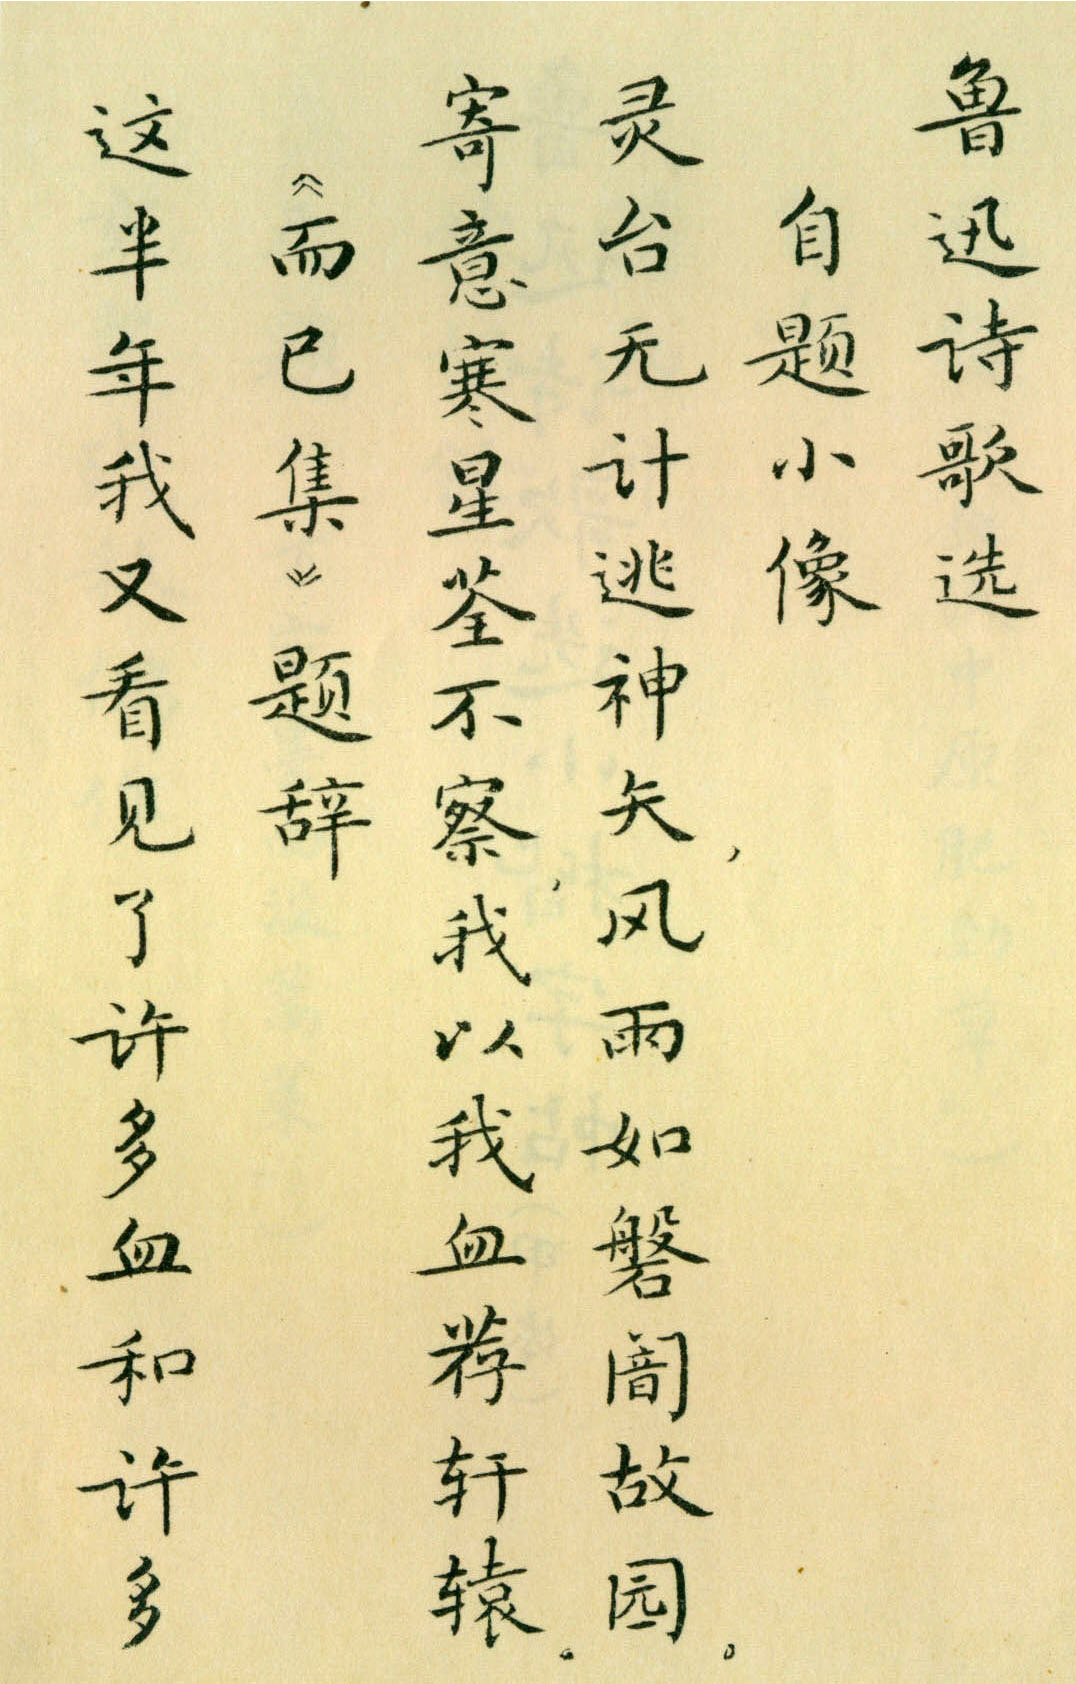 鲁迅诗歌选
自题小像
灵台无计逃神矢，风雨如磐闇故园。
寄意寒星荃不察，我以我血荐轩辕。
《而已集》题辞
这半年我又看见了许多血和许多